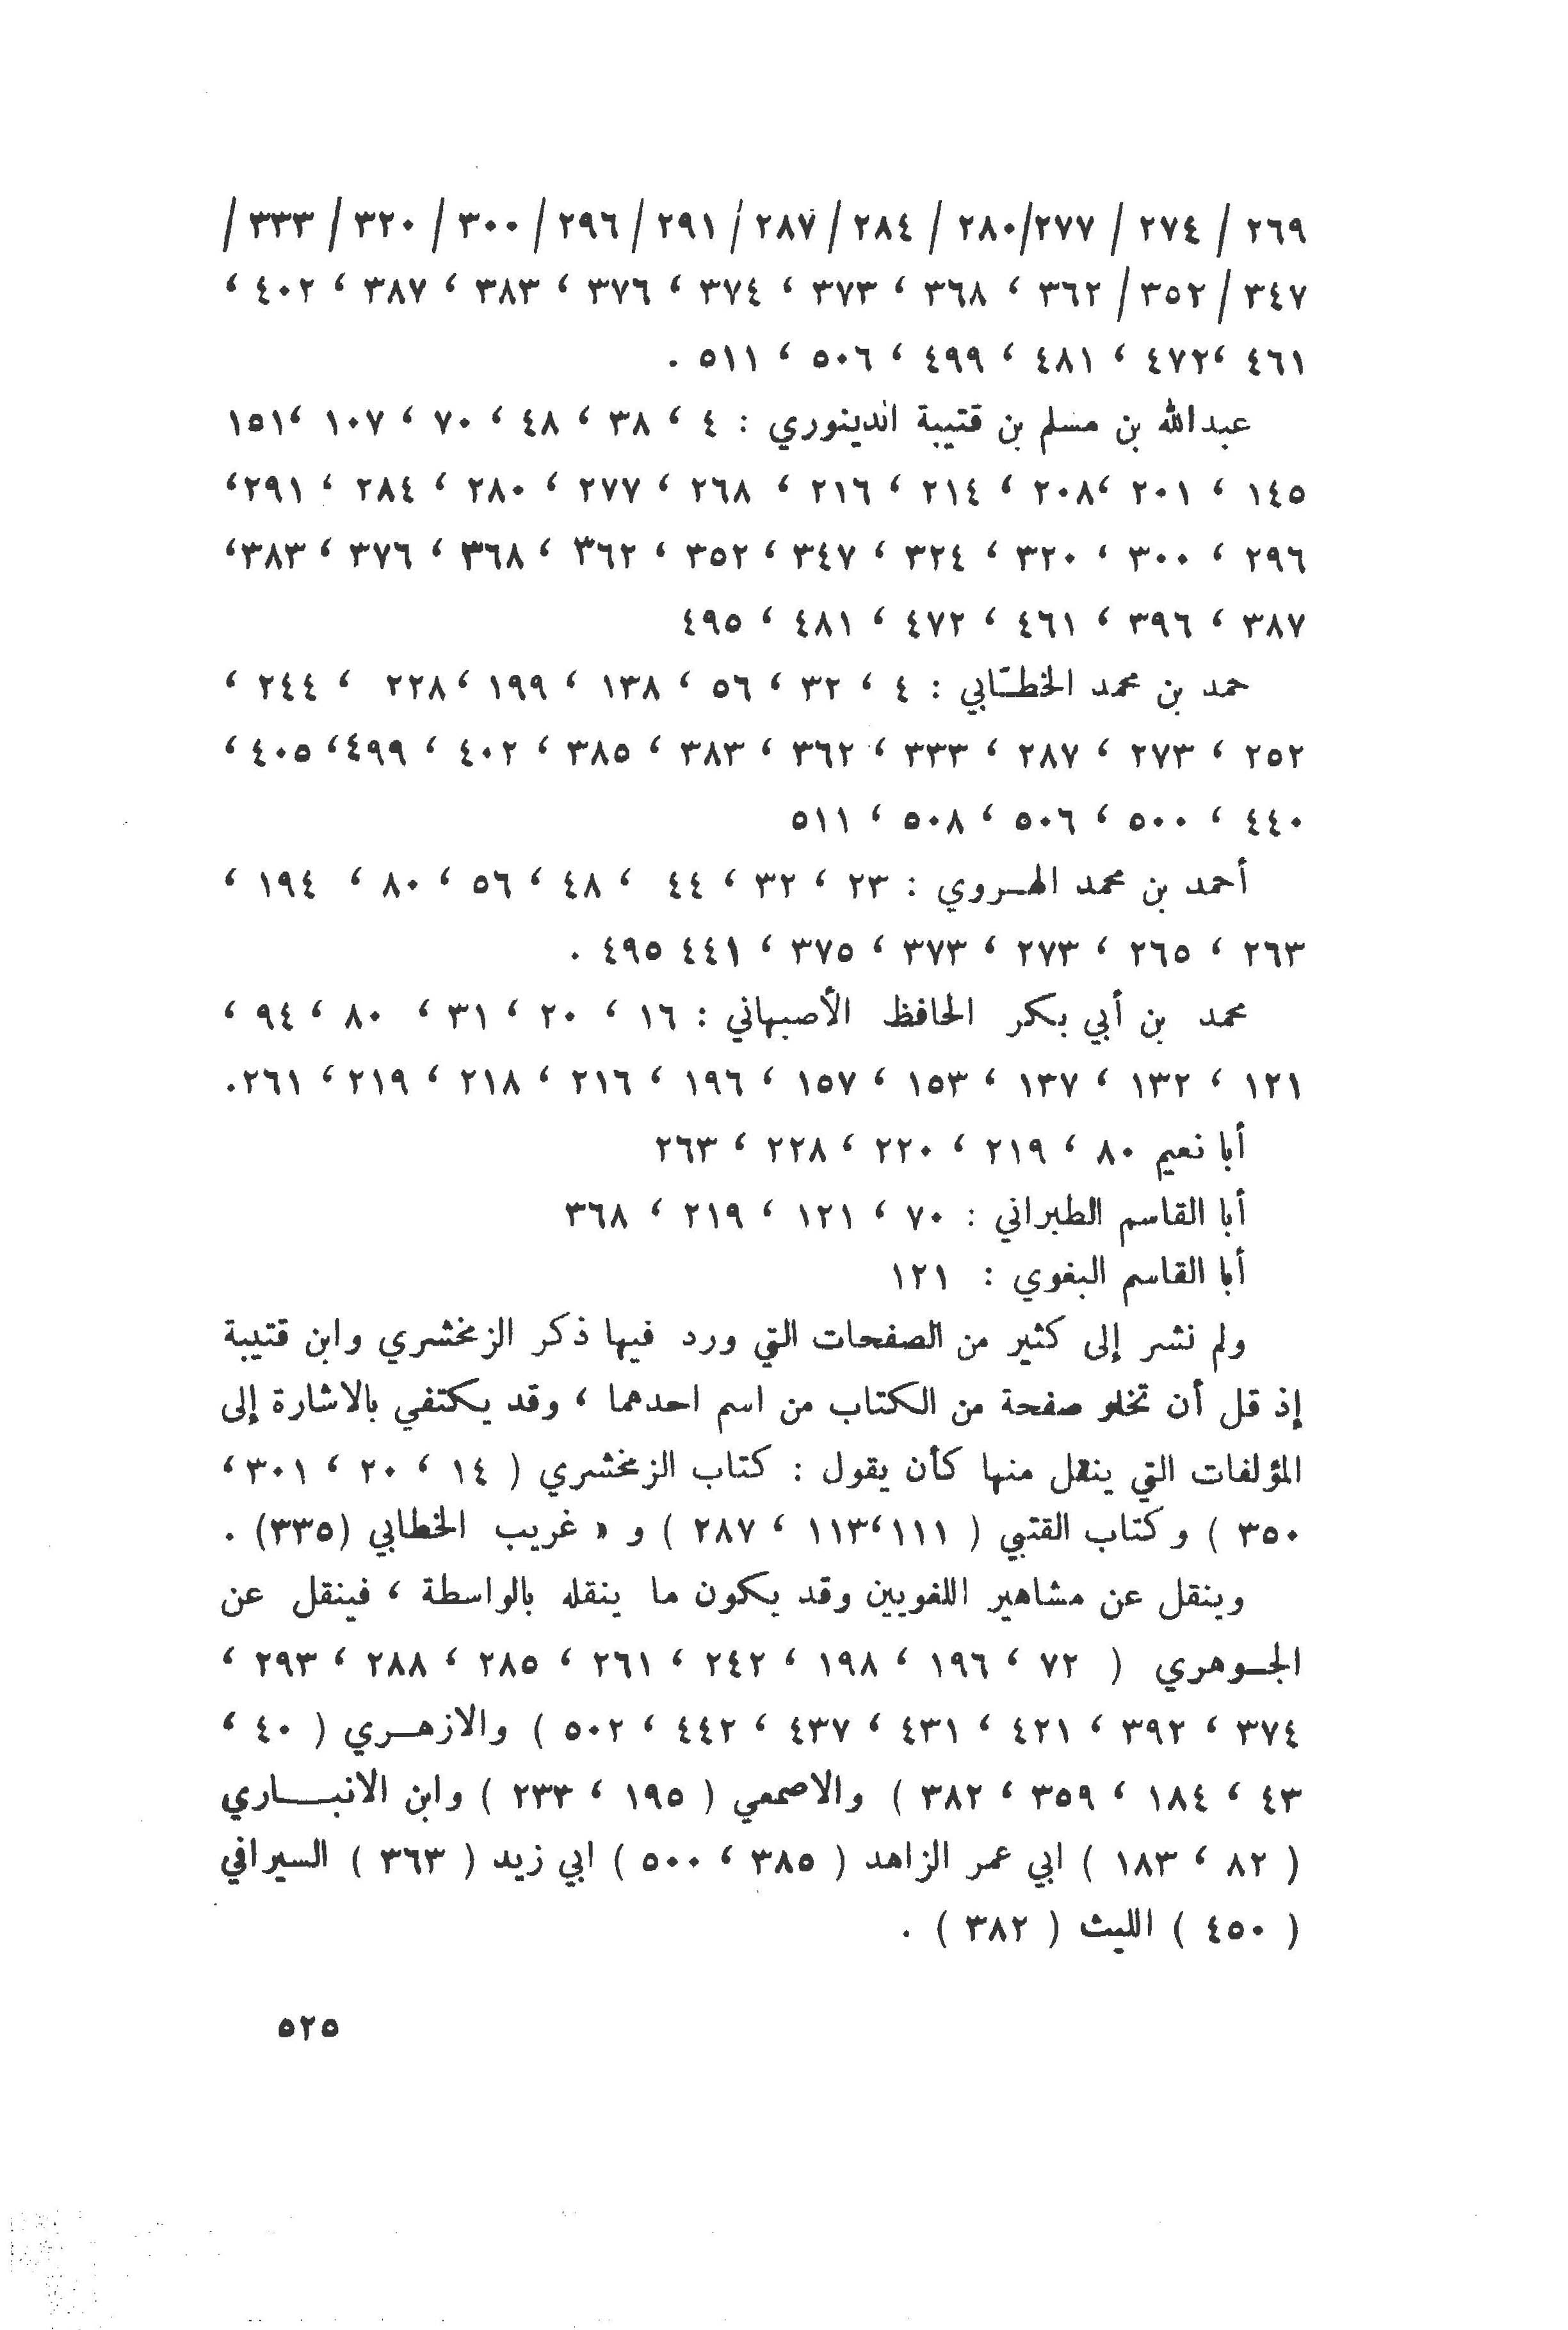 ٢٦٩ / ٢٧٤ / ٢٧٧/٢٨٠ / ٢٨٤ / ٢٨٧ / ٢٩١ / ٢٩٦ / ٣٠٠ / ٣٢٠ / ٣٣٣ /
٣٤٧ / ٣٥٢ / ٣٦٢ ، ٣٦٨ ، ٣٧٣ ، ٣٧٤ ، ٣٧٦ ، ٣٨٣ ، ٣٨٧ ، ٤٠٢ ،
٤٦١ ،٤٧٢ ، ٤٨١ ، ٤٩٩ ، ٥٠٦ ، ٥١١ .
عبدالله بن مسلم بن قتيبة الدينوري : ٤ ، ٣٨ ، ٤٨ ، ٧٠ ، ١٠٧ ،١٥١
١٤٥ ، ٢٠١ ،٢٠٨ ، ٢١٤ ، ٢١٦ ، ٢٦٨ ، ٢٧٧ ، ٢٨٠ ، ٢٨٤ ، ٢٩١،
٢٩٦ ، ٣٠٠ ، ٣٢٠ ، ٣٢٤ ، ٣٤٧ ، ٣٥٢ ، ٣٦٢ ، ٣٦٨ ، ٣٧٦ ، ٣٨٣،
٣٨٧ ، ٣٩٦ ، ٤٦١ ، ٤٧٢ ، ٤٨١ ، ٤٩٥
حمد بن محمد الخطّابي : ٤ ، ٣٢ ، ٥٦ ، ١٣٨ ، ١٩٩ ،٢٢٨ ، ٢٤٤ ،
٢٥٢ ، ٢٧٣ ، ٢٨٧ ، ٣٣٣ ، ٣٦٢ ، ٣٨٣ ، ٣٨٥ ، ٤٠٢ ، ٤٩٩، ٤٠٥ ،
٤٤٠ ، ٥٠٠ ، ٥٠٦ ، ٥٠٨ ، ٥١١
أحمد بن محمد الهـروي : ٢٣ ، ٣٢ ، ٤٤ ، ٤٨ ، ٥٦ ، ٨٠ ، ١٩٤ ،
٢٦٣ ، ٢٦٥ ، ٢٧٣ ، ٣٧٣ ، ٣٧٥ ، ٤٤١ ٤٩٥ .
محمد بن أبي بكر الحافظ الأصبهاني : ١٦ ، ٢٠ ، ٣١ ، ٨٠ ، ٩٤ ،
١٢١ ، ١٣٢ ، ١٣٧ ، ١٥٣ ، ١٥٧ ، ١٩٦ ، ٢١٦ ، ٢١٨ ، ٢١٩ ، ٢٦١.
أبا نعيم ٨٠ ، ٢١٩ ، ٢٢٠ ، ٢٢٨ ، ٢٦٣
أبا القاسم الطبراني : ٧٠ ، ١٢١ ، ٢١٩ ، ٣٦٨
أبا القاسم البغوي : ١٢١
ولم نشر إلى كثير من الصفحات التي ورد فيها ذكر الزمخشري وابن قتيبة
إذ قل أن تخلو صفحة من الكتاب من اسم احدهما ، وقد يكتفي بالاشارة إلى
المؤلفات التي ينقل منها كأن يقول : كتاب الزمخشري ( ١٤ ، ٢٠ ، ٣٠١ ،
٣٥٠ ) وكتاب القتبي ( ١١١ ،١١٣ ، ٢٨٧ ) و « غريب الخطابي (٣٣٥) .
وينقل عن مشاهير اللغويين وقد يكون ما ينقله بالواسطة ، فينقل عن
الجـوهري ( ٧٢ ، ١٩٦ ، ١٩٨ ، ٢٤٢ ، ٢٦١ ، ٢٨٥ ، ٢٨٨ ، ٢٩٣ ،
٣٧٤ ، ٣٩٢ ، ٤٢١ ، ٤٣١ ، ٤٣٧ ، ٤٤٢ ، ٥٠٢ ) والازهـري ( ٤٠ ،
٤٣ ، ١٨٤ ، ٣٥٩ ، ٣٨٢ ) والاصمعي ( ١٩٥ ، ٢٣٣ ) وابن الانبـاري
( ٨٢ ، ١٨٣ ) ابي عمر الزاهد ( ٣٨٥ ، ٥٠٠ ) ابي زيد ( ٣٦٣ ) السيرافي
( ٤٥٠ ) الليث ( ٣٨٢ ) .
٥٢٥